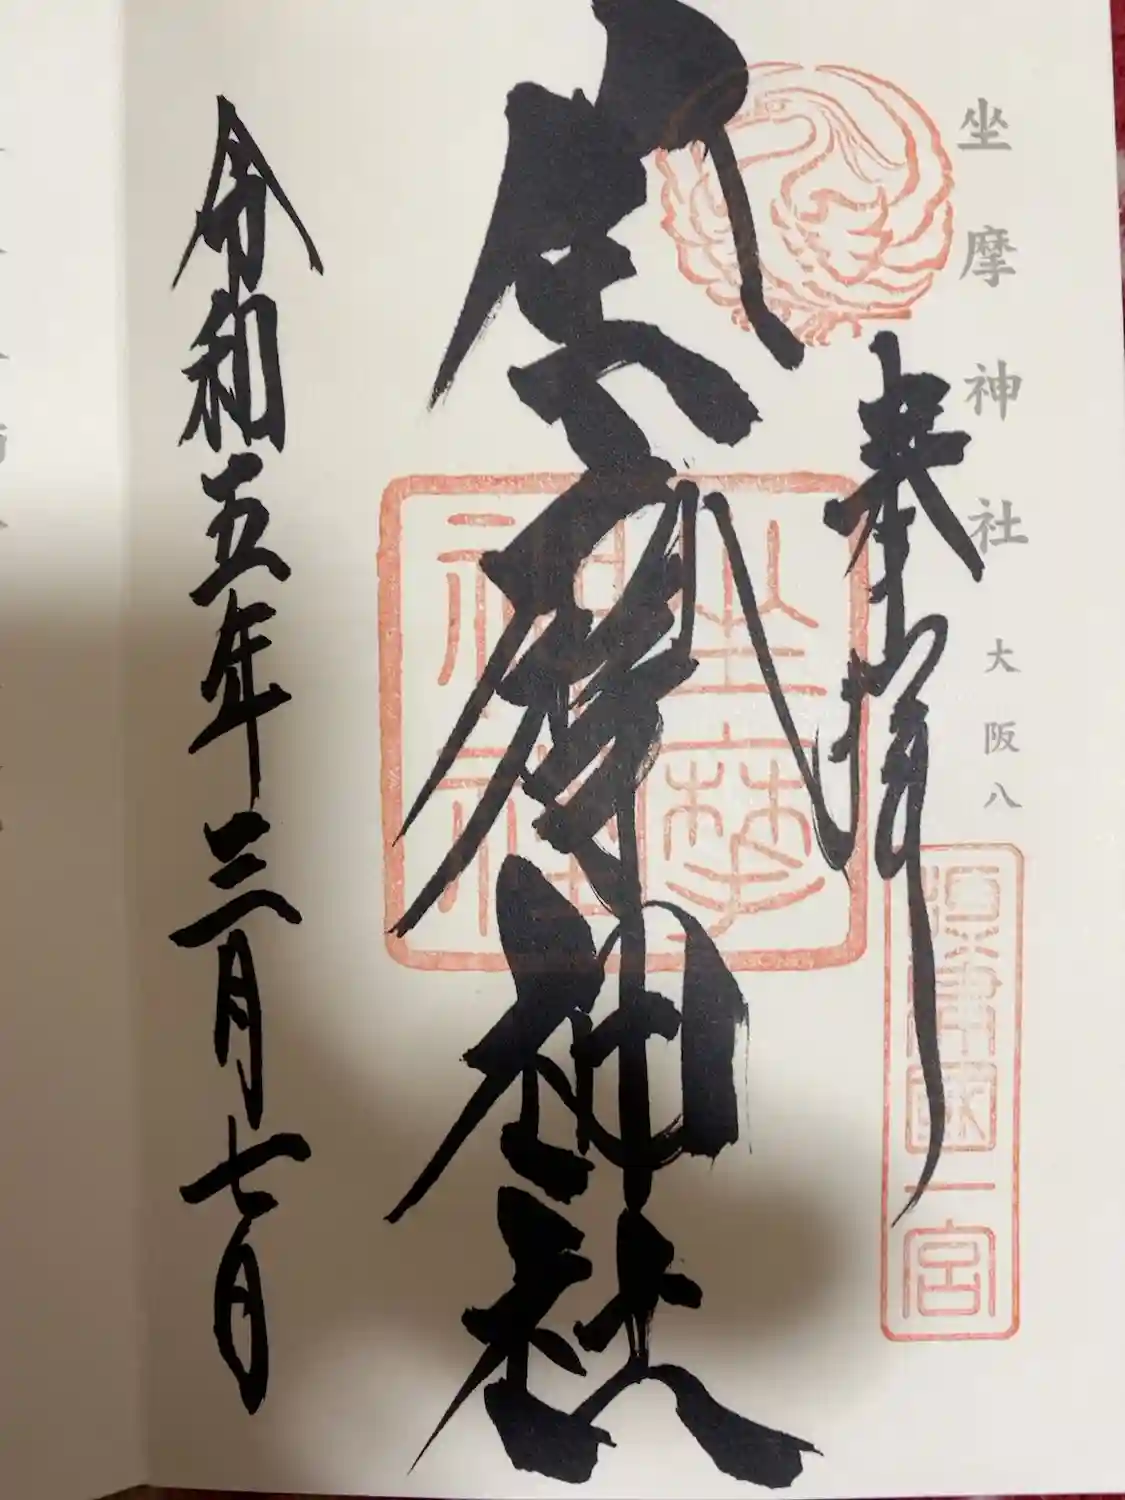 坐摩神社 大阪八
奉拝
摂津國一宮
坐摩神社
坐摩神社
令和五年三月七日